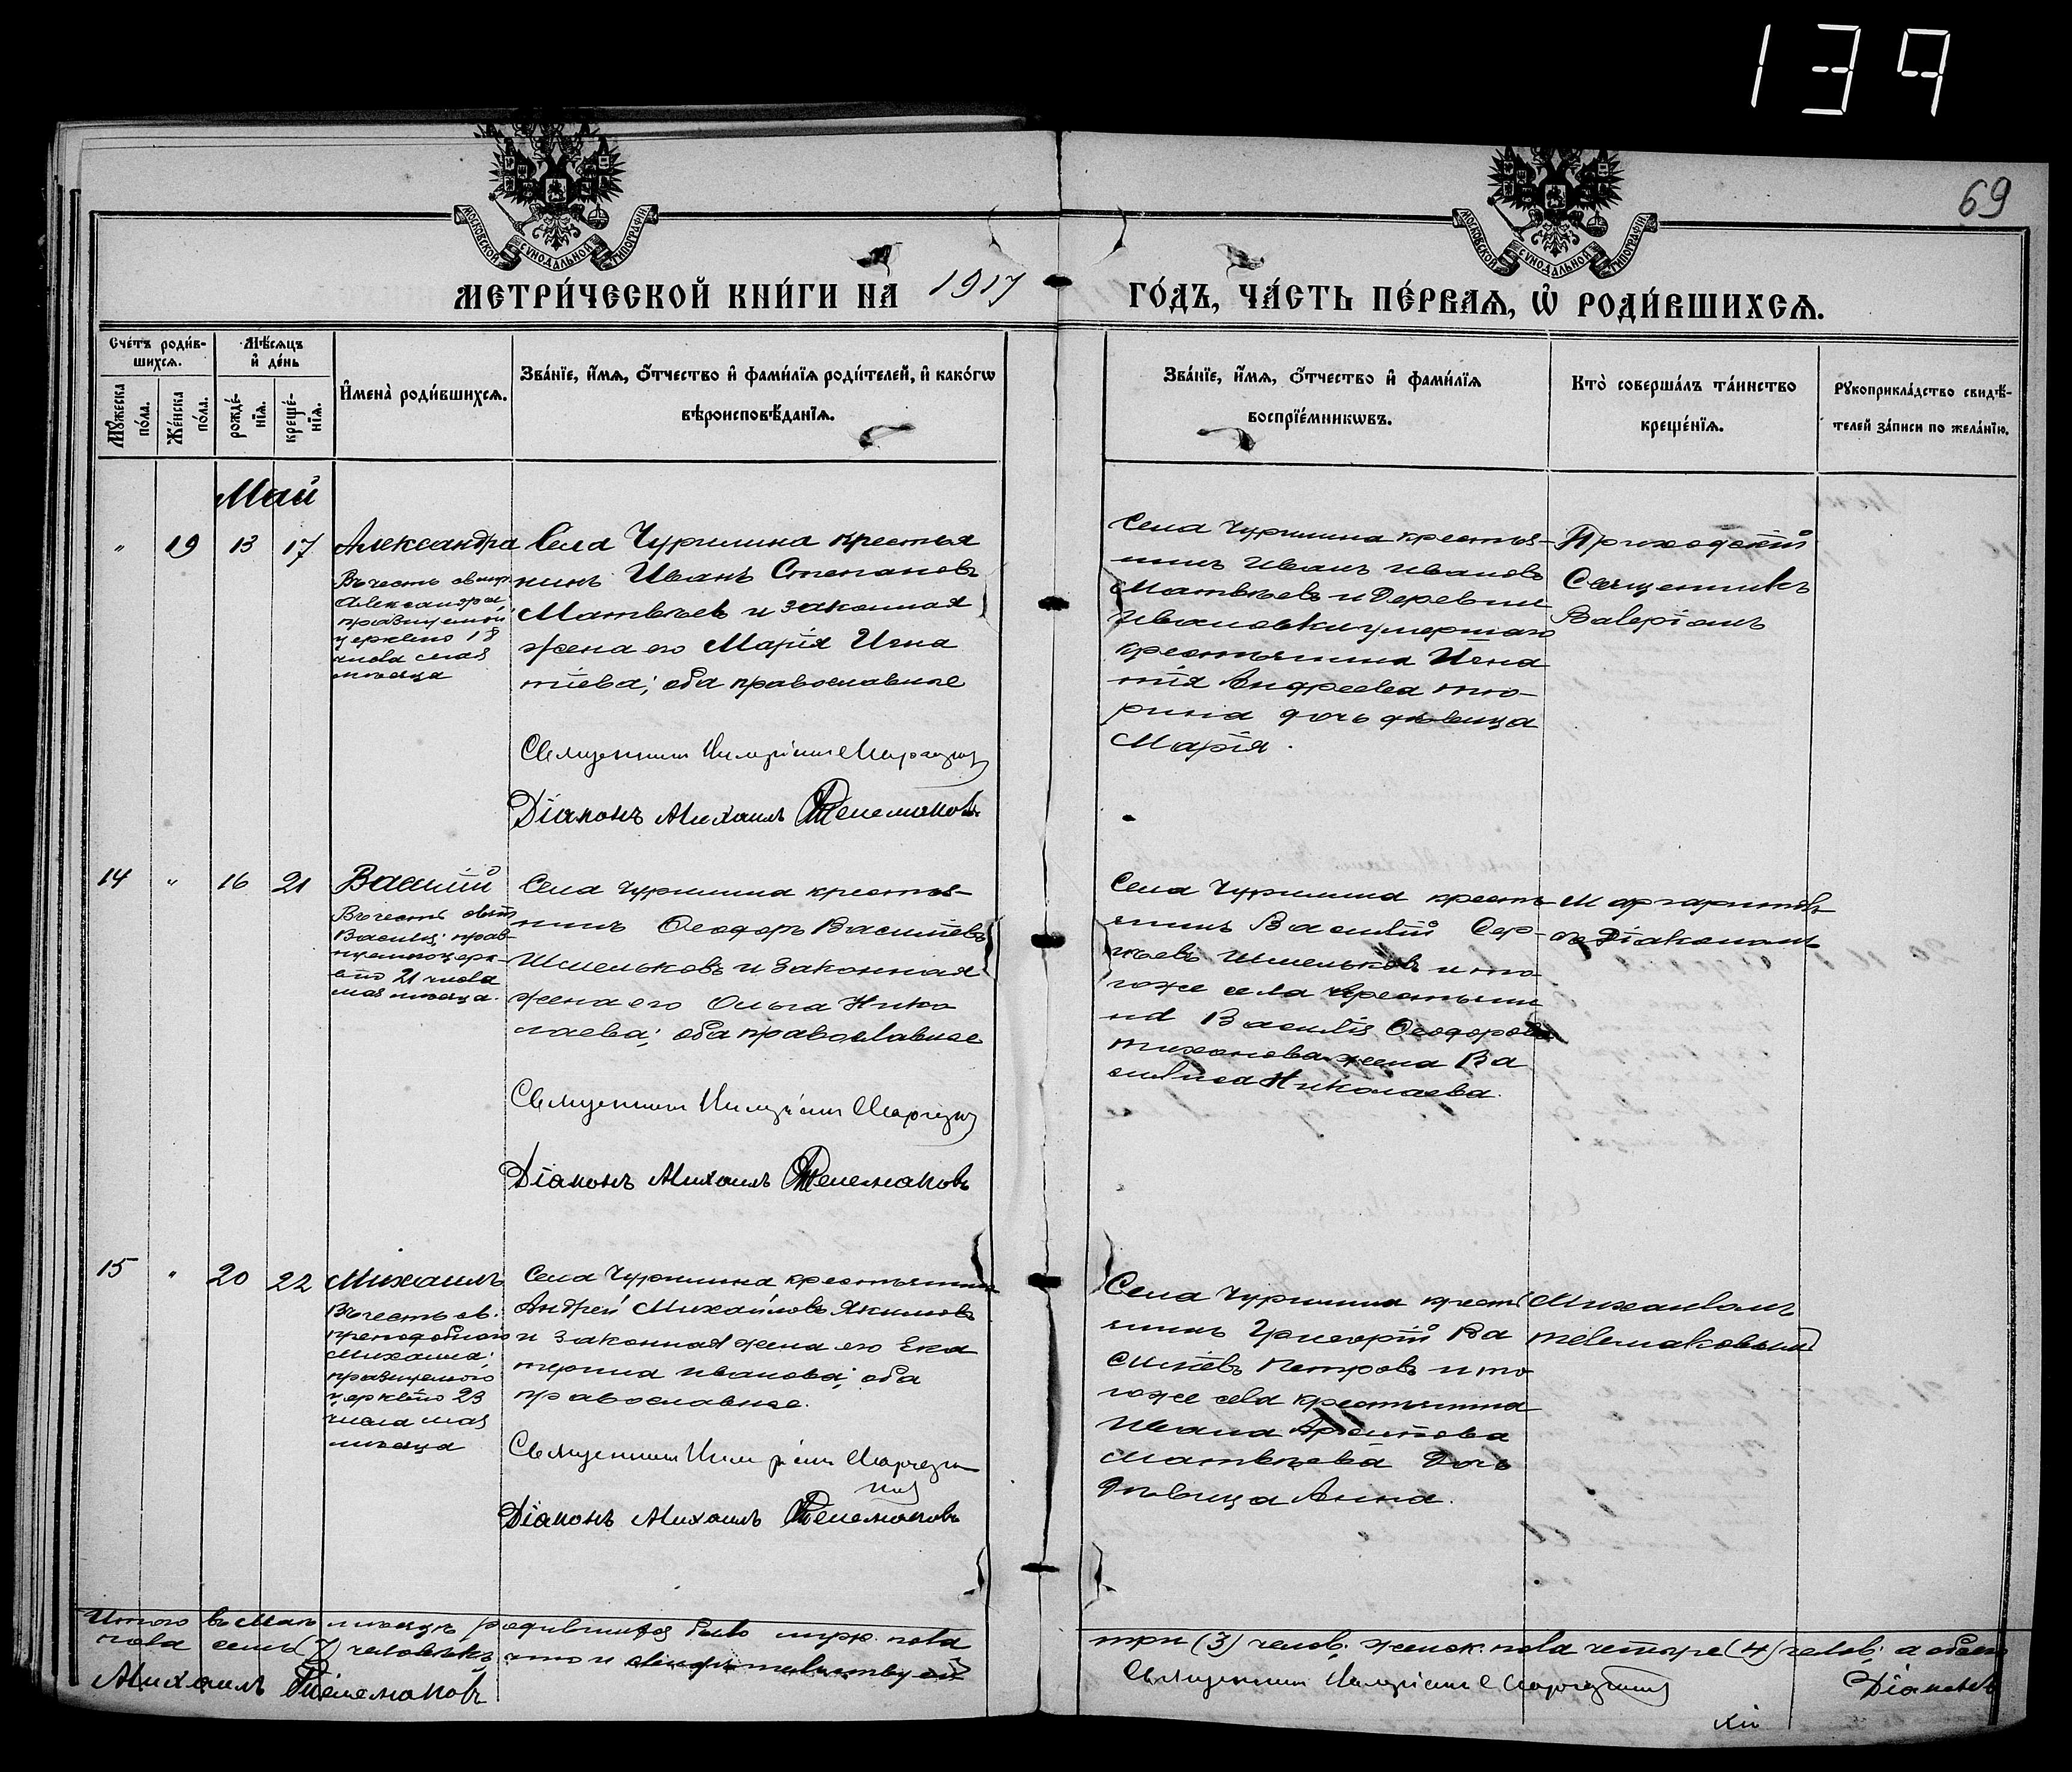 139
69
МОСКОВСКОЙ СѴНОДАЛЬНОЙ ТИПОГРАФІИ
МОСКОВСКОЙ СѴНОДАЛЬНОЙ ТИПОГРАФІИ
МЕТРИ́ЧЕСКОЙ КНИ́ГИ НА 1917 ГО́ДЪ, ЧА́СТЬ ПЕ́РВАѦ, Ѡ҆ РОДИ́ВШИХСѦ.
Сче́тъ роди́в-
шихсѧ.
Мꙋ́жеска по́ла.
Же́нска по́ла.
Мѣ́сѧцъ и҆ де́нь
рожде́-
нїѧ.
креще́-
нїѧ.
И҆мена̀ роди́вшихсѧ.
Зва́нїе, и҆́мѧ, ѻ҆́тчество и҆ фами́лїѧ роди́телей, и҆ како́гѡ
вѣроисповѣ́данїѧ.
Зва́нїе, и҆́мѧ, ѻ҆́тчество и҆ фами́лїѧ
воспрїе́мникѡвъ.
Кто̀ соверша́лъ та́инство
креще́нїѧ.
Рꙋкоприкла́дство свидѣ́-
телей за́писи по жела́нїю.
Май
" 19 13 17
Александра
Въ честь св. мц.
Александры,
празнуемой
церквію 18
числа мая
мѣсяца
Села Чурилина крестья
нинъ Иванъ Степановъ
Матвѣевъ и законная
жена его Марія Игна
тіева; оба православные
Священникъ Валеріанъ
Діаконъ Михаилъ Телемаковъ
Села Чурилина крестья-
нинъ Иванъ Ивановъ
Матвѣевъ и Деревни
Ивановки умершаго
крестьянина Игна
тія Андреева Тю-
рина дочь дѣвица
Марія.
Приходскій
Священникъ
Валеріанъ
14 " 16 21
Василій
Въ честь
Василія; праз-
нуемаго церк-
вію 21 числа
мая мѣсяца.
Села Чурилина крестья-
нинъ Ѳеодоръ Васильевъ
Шмельковъ и законная
жена его Ольга Нико
лаева; оба православные
Священникъ Валеріанъ
Діаконъ Михаилъ Телемаковъ
Села Чурилина кресть
янинъ Василій Сер-
гѣевъ Шмельковъ и то
гоже села крестьяни
на Василія Ѳеодорова
Тихонова жена Ва
силиса Николаева.
Маргаритовъ
съ Діакономъ
15 " 20 22
Михаилъ
Въ честь св.
преподобнаго
Михаила;
празнуемаго
церквію 23
числа мая
мѣсяца
Села Чурилина крестьянинъ
Андрей Михайловъ Якимовъ
и законная жена его Ека
терина Иванова; оба
православные.
Священникъ Валеріанъ
Діаконъ Михаилъ Телемаковъ
Села Чурилина кресть
янинъ Григорій Ва
сильевъ Петровъ и то
гоже села крестьянина
Ивана
Матвѣева Дочь
Дѣвица Анна.
Михаиломъ
Телемаковымъ
Итого въ Маѣ мѣсяцѣ родившихся было муж. пола три (3) челов; женск. пола четыре (4) челов; а обоего
пола семь (7) человѣкъ, что и свидѣтельствуемъ Священникъ Валеріанъ Діаконъ
Михаилъ Телемаковъ